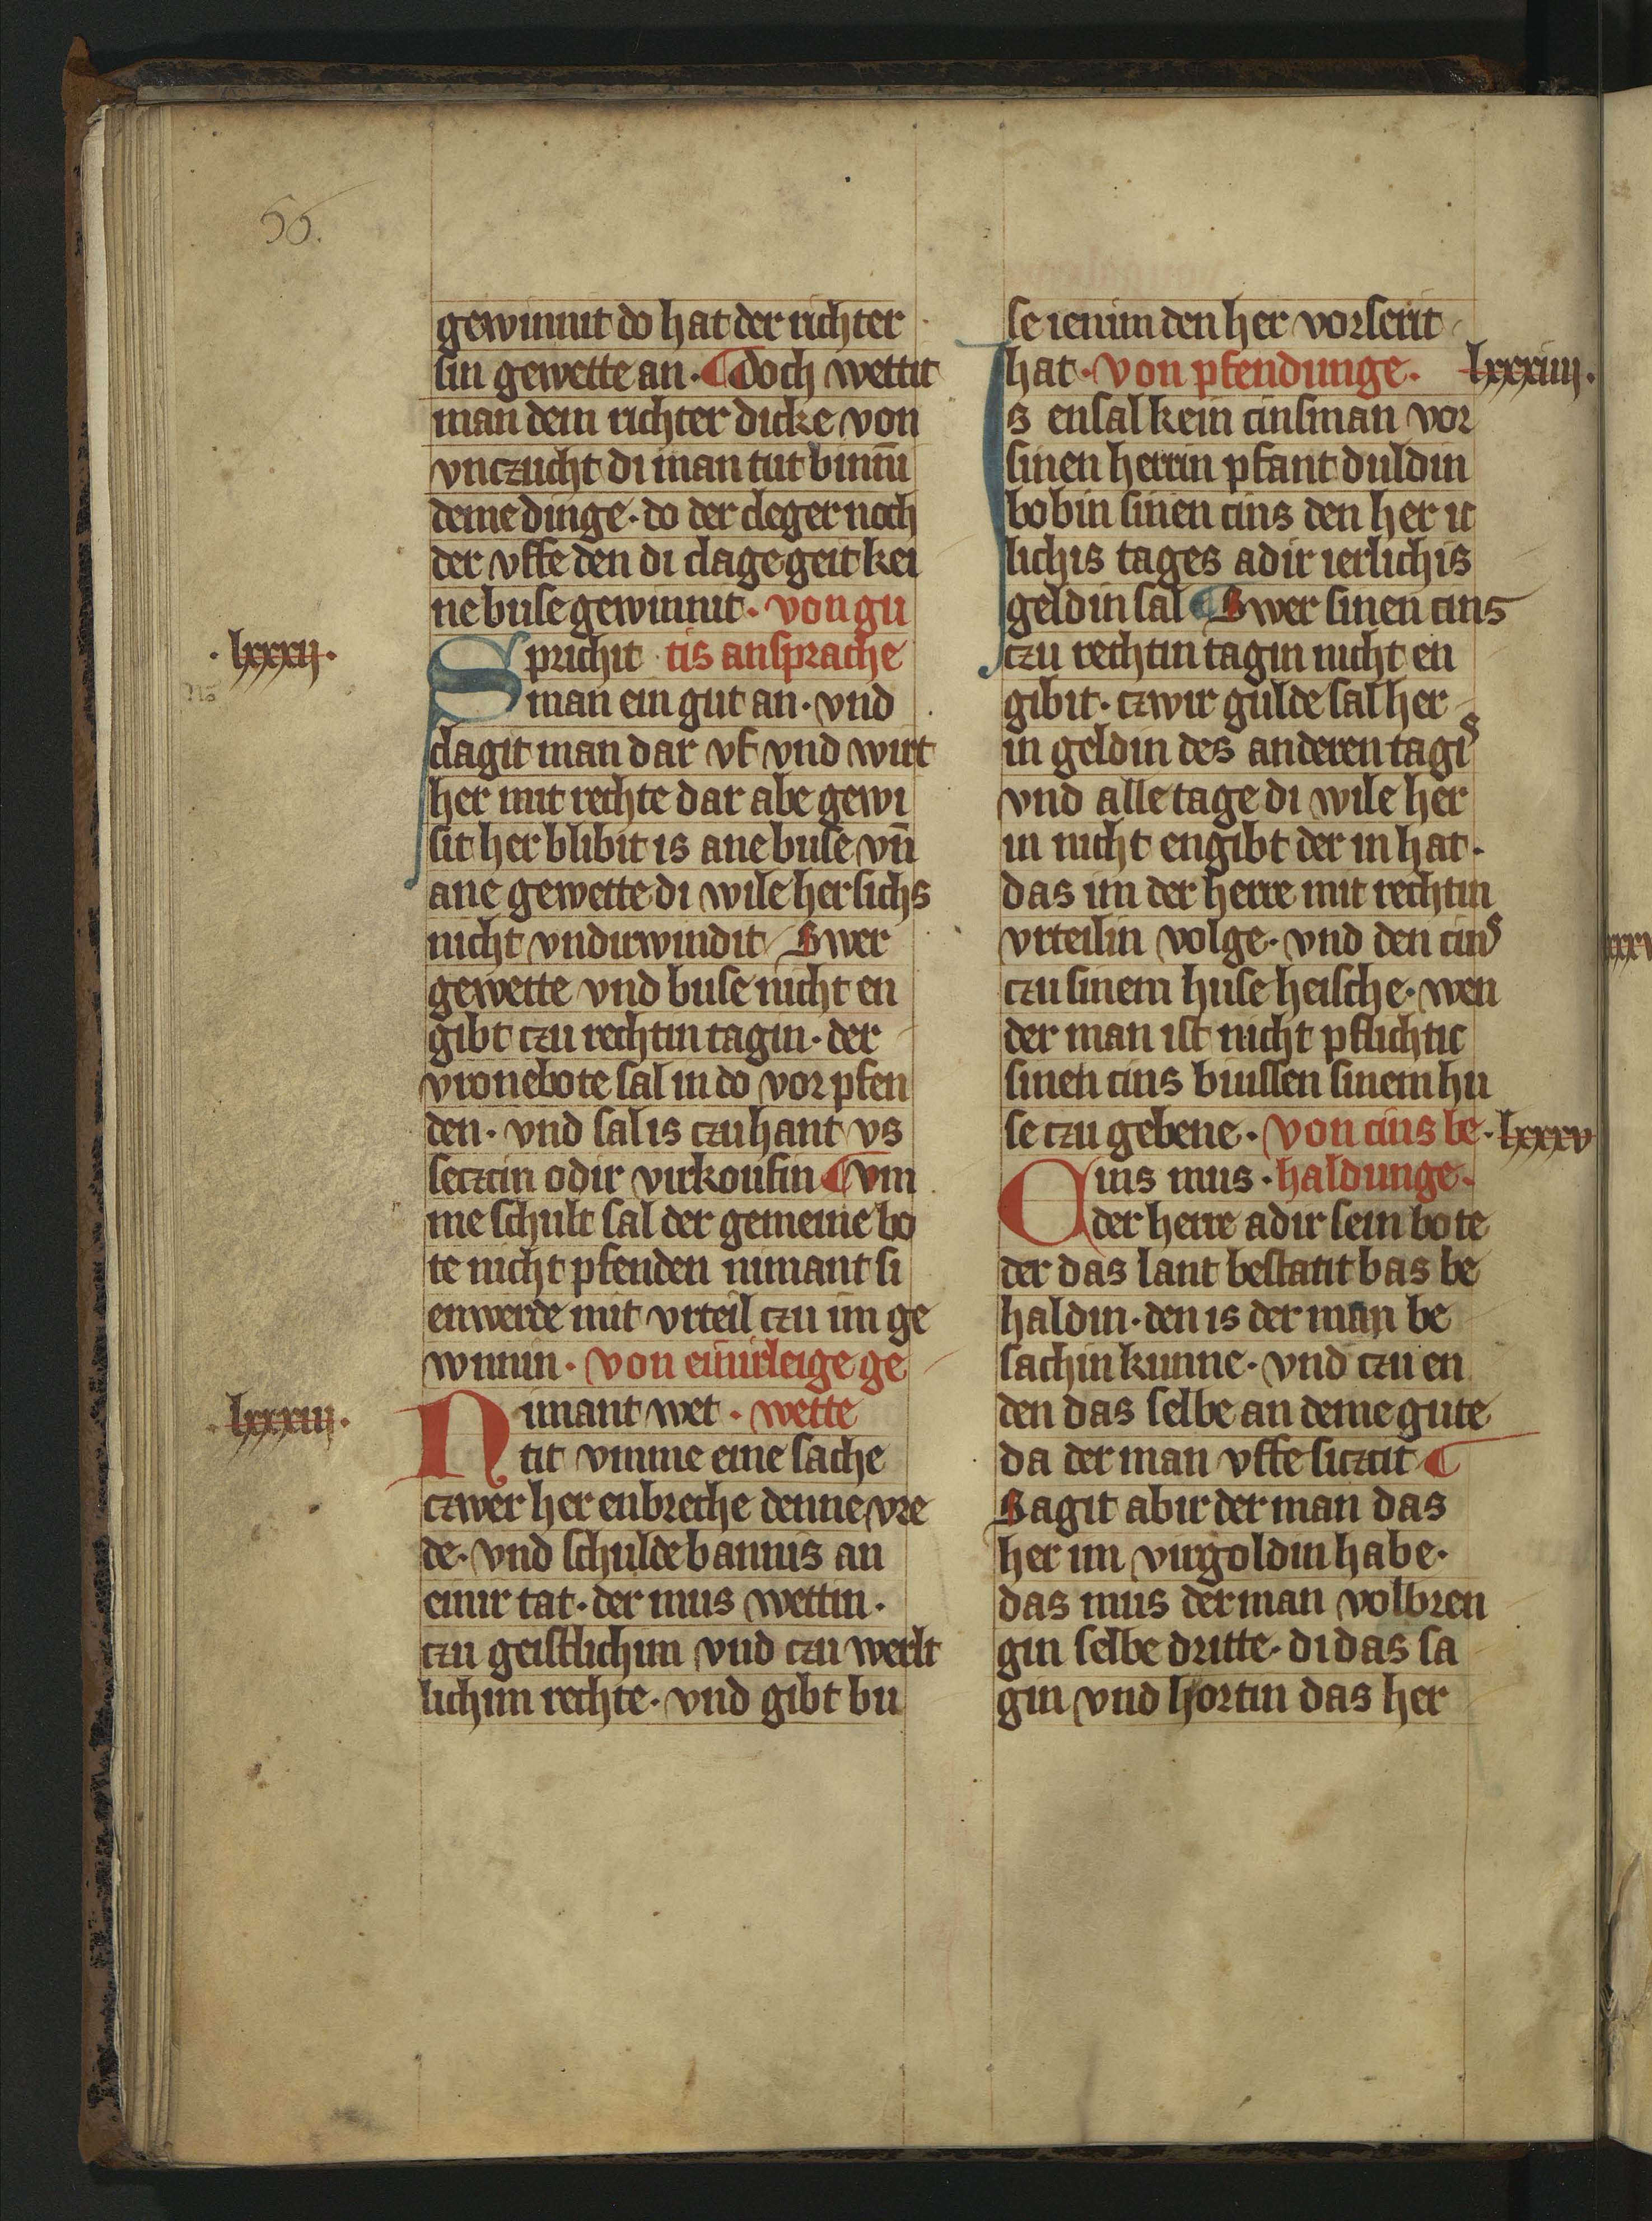 56.
gewinnit do hat der richter
sin gewette an. ¶ doch wettit
man dem richter dicke von
vnczucht di man tut binnī
deme dinge. do der cleger noch
der vffe den di clage geit kei
ne buse gewinnit. von gu
.lxxxij.
Sprichit tis ansprache
man ein gut an. vnd
clagit man dar vf vnd wirt
her mit rechte dar abe gewi
sit her blibit is ane buse vn̄
ane gewette di wile her sichs
nicht vndirwindit / Swer
gewette vnd buse nicht en
gibt czu rechtin tagin. der
vronebote sal in do vor pfen
den. vnd sal is czu hant vs
seczcin odir virkoufin ¶ vm
me schult sal der gemeine bo
te nicht pfenden nimant si
enwerde mit vrteil czu im ge
wnnin. von einirleige ge
.lxxxiij.
Nimant wet. wette
tit vmme eine sache
czwer her enbreche denne vre
de. vnd schulde bannis an
einir tat. der mus wettin.
czu geistlichim vnd czu werlt
lichim rechte. vnd gibt bu
se ienim den her vorserit
hat. von pfendunge. lxxxiiij.
Is ensal kein cinsman vor
sinen herrin pfant duldin
bobin sinen cins den her it
lichis tages adir ierlichis
geldin sal ¶ Swer sinen cins
czu rechtin tagin nicht en
gibit. czwir gulde sal her
in geldin des anderen tagis
vnd alle tage di wile her
in nicht engibt der in hat.
das im der herre mit rechtin
vrteilin volge. vnd den cins
czu sinem huse heische. wen
der man ist nicht pflichtic
sinen cins buissen sinem hu
se czu gebene. von cins be. lxxxv
Cins mus. haldunge.
der herre adir sein bote
der das lant bestatit bas be
haldin. den is der man be
sachin kunne. vnd czu en
den das selbe an deme gute
da der man vffe siczcit ¶
Sagit abir der man das
her im virgoldin habe.
das mus der man volbren
gin selbe dritte. di das sa
gin vnd hortin das her